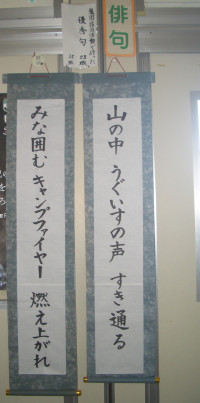 俳句
優秀句
山の中 うぐいすの声 すき通る
みな囲む キャンプファイヤー 燃え上がれ